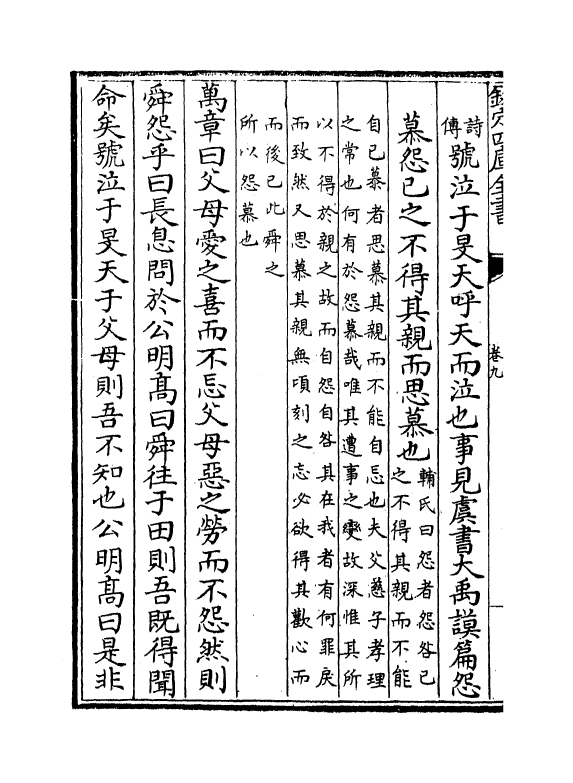 欽定四庫全書
卷九
詩傳號泣于旻天呼天而泣也事見虞書大禹謨篇怨
慕怨己之不得其親而思慕也
輔氏曰怨者怨咎己
之不得其親而不能
自已慕者思慕其親而不能自忘也夫父慈子孝理
之常也何有於怨慕哉唯其遭事之變故深惟其所
以不得於親之故而自怨自咎其在我者有何罪戾
而致然又思慕其親無頃刻之忘必欲得其歡心而
而後已此舜之
所以怨慕也
萬章曰父母愛之喜而不忘父母惡之勞而不怨然則
舜怨乎曰長息問於公明髙曰舜往于田則吾既得聞
命矣號泣于旻天于父母則吾不知也公明髙曰是非